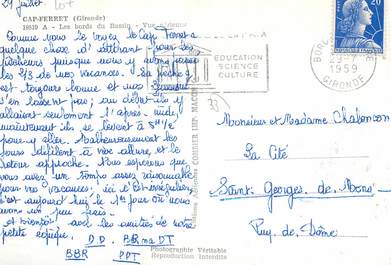 29 juillet
lot
CAP-FERRET (Gironde)
18519 A - Les bords du Bassin - Vue
Comme vous le voyez le Cap Ferret a
quelque chose d'attachant pour les
pêcheurs puisque nous y avons
les 2/3 de nos vacances. La pêche y
est toujours bonne et nos
s'en lassent pas ; au début ils y
allaient seulement l'après-midi
maintenant ils se lèvent à 8h 1/2
pour y aller. Malheureusement les
jours défilent à vive allure et le
retour approche. Nous espérons que
vous avez un temps assez raisonnable
pour vos vacances ; ici c'est irrégulier,
c'est aujourd'hui le 1er jour où nous
avons un peu frais.
à bientôt avec les amitiés de notre
petite équipe. D.D.
BBR PDT
COMBIER IMP. MACON
EDUCATION
SCIENCE
CULTURE
1959
GIRONDE
20
Messieurs et Madame Chalancon
La Cité
Saint Georges de Mons
Puy de Dôme
Photographie Véritable
Reproduction Interdite